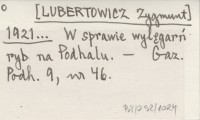 [LUBERTOWICZ Zygmunt]
1921... W sprawie wylęgarń
ryb na Podhalu. — Gaz.
Podh. 9, nr 46.